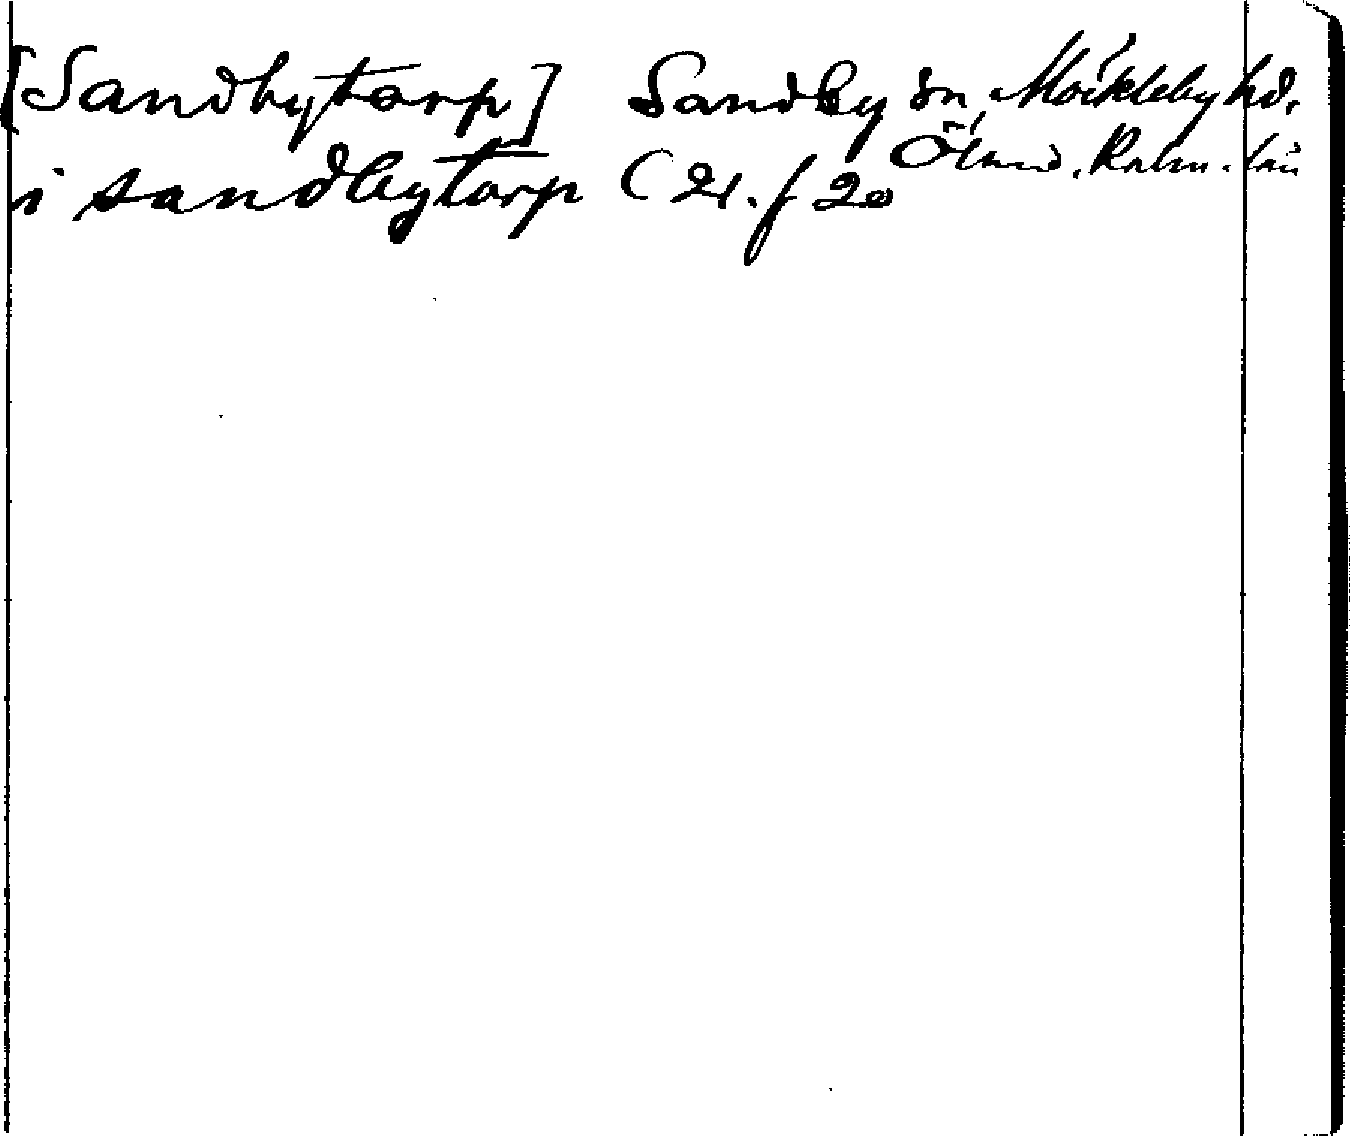 [Sandbytorp] Sandby sn, Möckleby hd,
Öland. Kalm. län
i sandbytorp (21. f 20